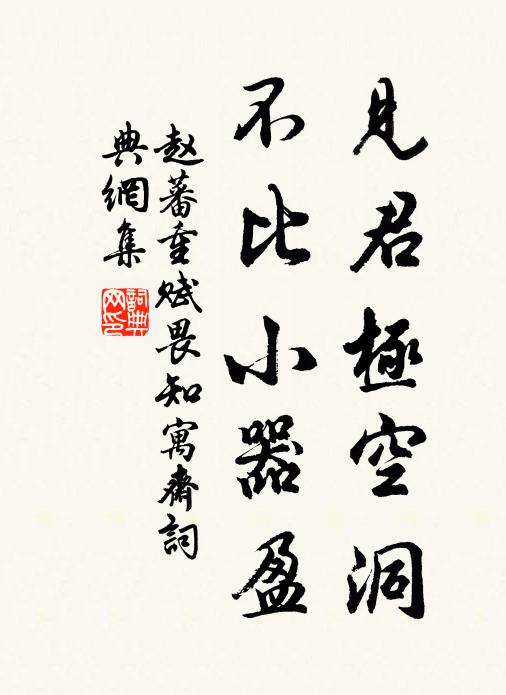 見君極空洞
不比小器盈
赵蕃重赋畏知寓齋詞
典網集
詞典网印